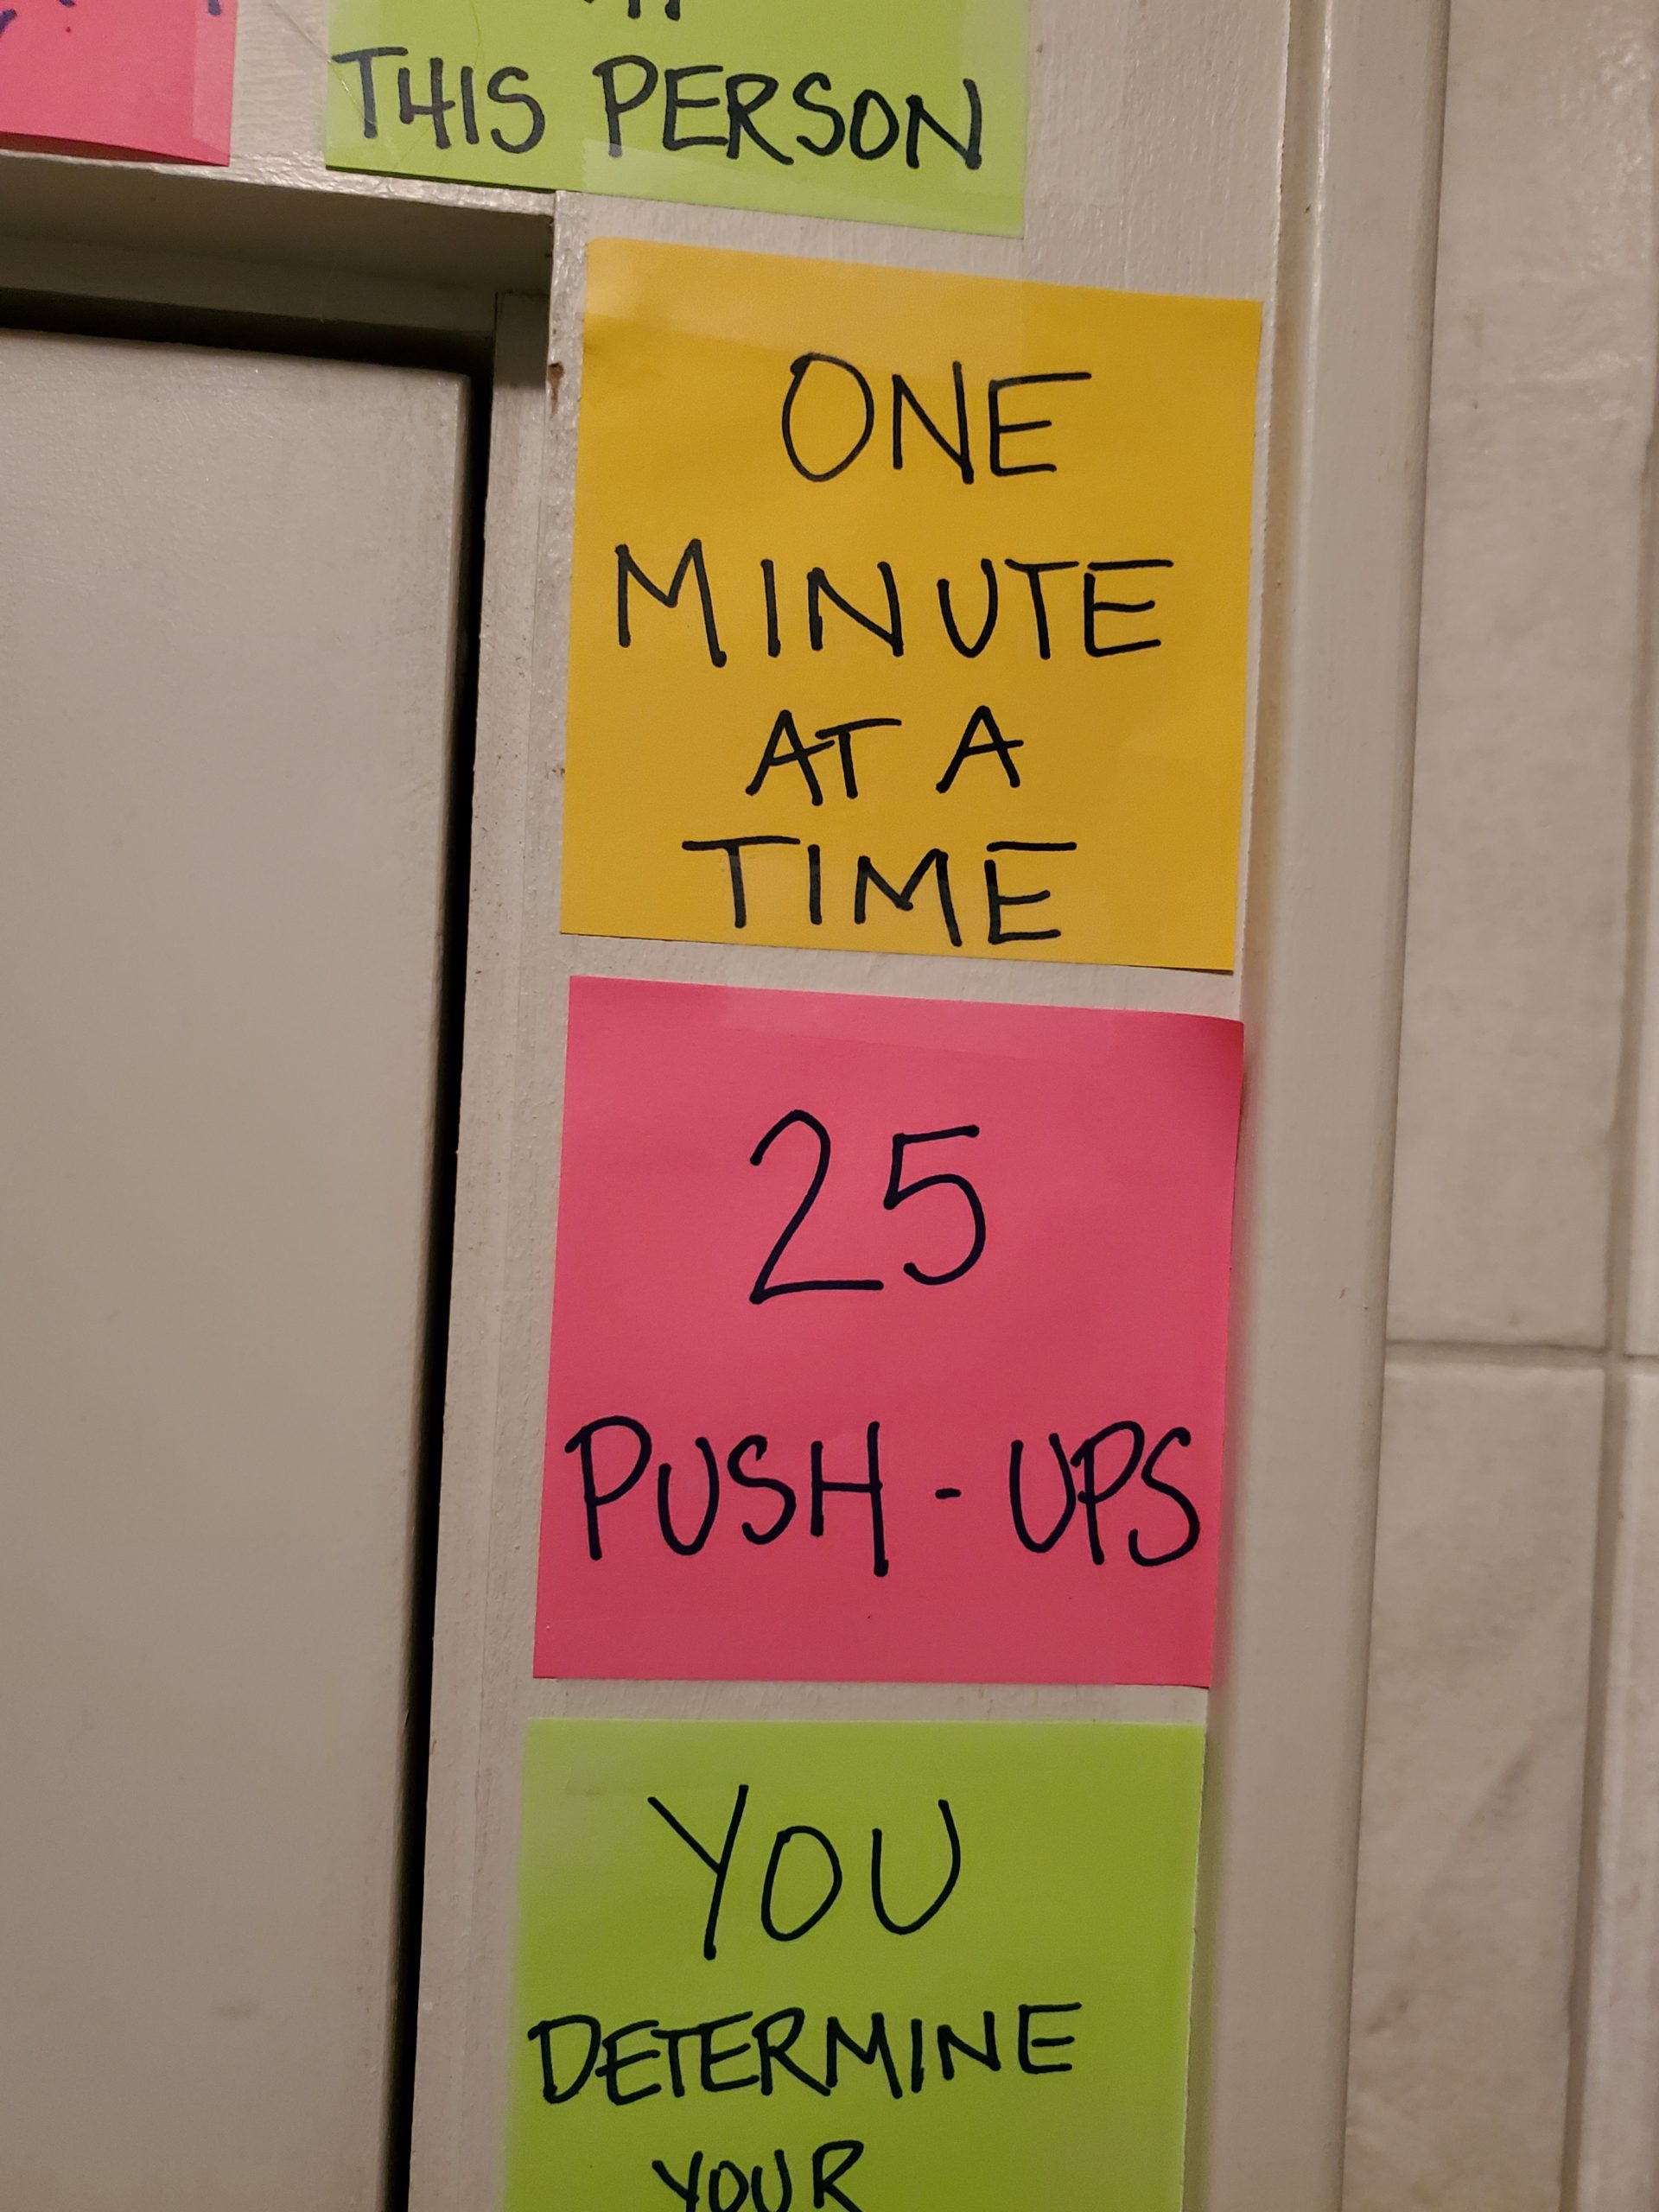 THIS PERSON
ONE
MINUTE
AT A
TIME
25
PUSH-UPS
YOU
DETERMINE
YOUR